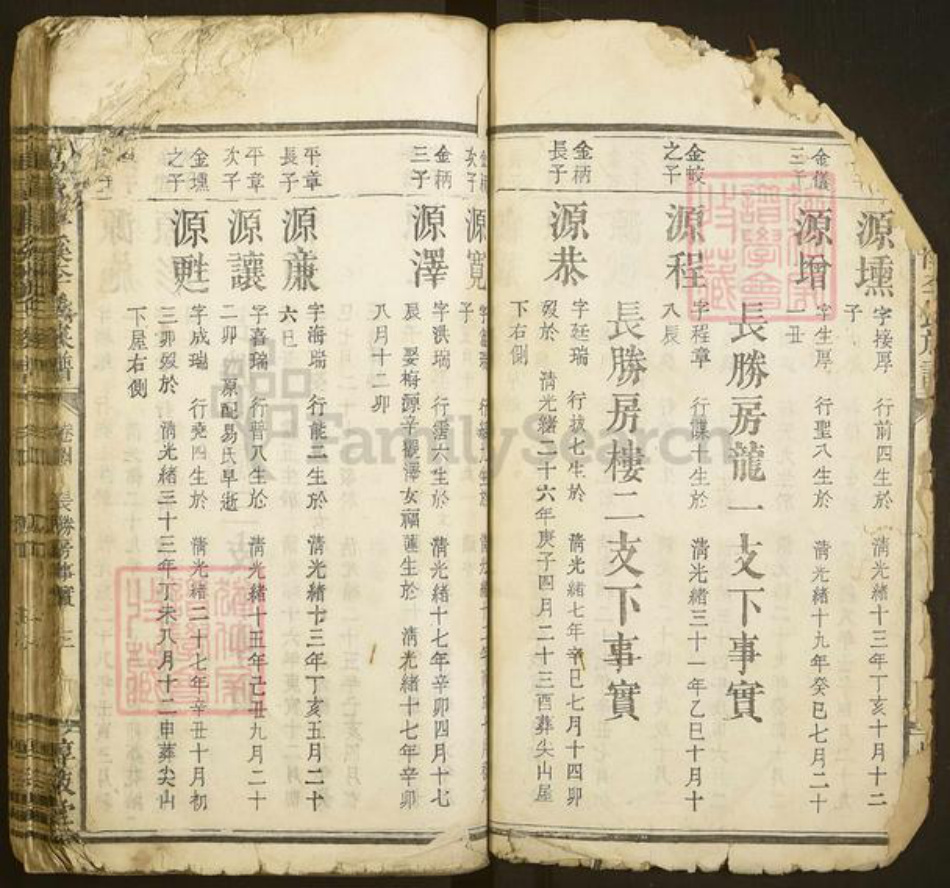 源壎
字接厚 行前四生於 清光緒十三年丁亥十月十二
子
金儀
三子
源增
字生厚 行聖八生於 清光緒十九年癸巳七月二十
一丑
長勝房龍一支下事實
金蛟
之子
源程
字程章 行儀十生於 清光緒三十一年乙巳十月十
八辰
長勝房樓二支下事實
金柄
長子
源恭
字廷瑞 行拔七生於 清光緒七年辛巳七月十四卯
歿於 清光緒二十六年庚子四月二十三酉葬尖山屋
下右側
次子
源寬
子
金柄
三子
源澤
字洪瑞 行儒六生於 清光緒十七年辛卯四月十七
辰 娶梅源辛觀澤女福蓮生於 清光緒十七年辛卯
八月十二卯
平章
長子
源亷
字海瑞 行能二生於 清光緒十三年丁亥五月二十
六巳
平章
次子
源讓
字喜瑞 行普八生於 清光緒十五年己丑九月二十
二卯 原配易氏早逝
金壎
之子
源甦
字成瑞 行堯四生於 清光緒二十七年辛丑十月初
三卯歿於 清光緒三十三年丁未八月十二申葬尖山
下屋右側
卷四
長勝房事實
三
惇敘堂
FamilySearch